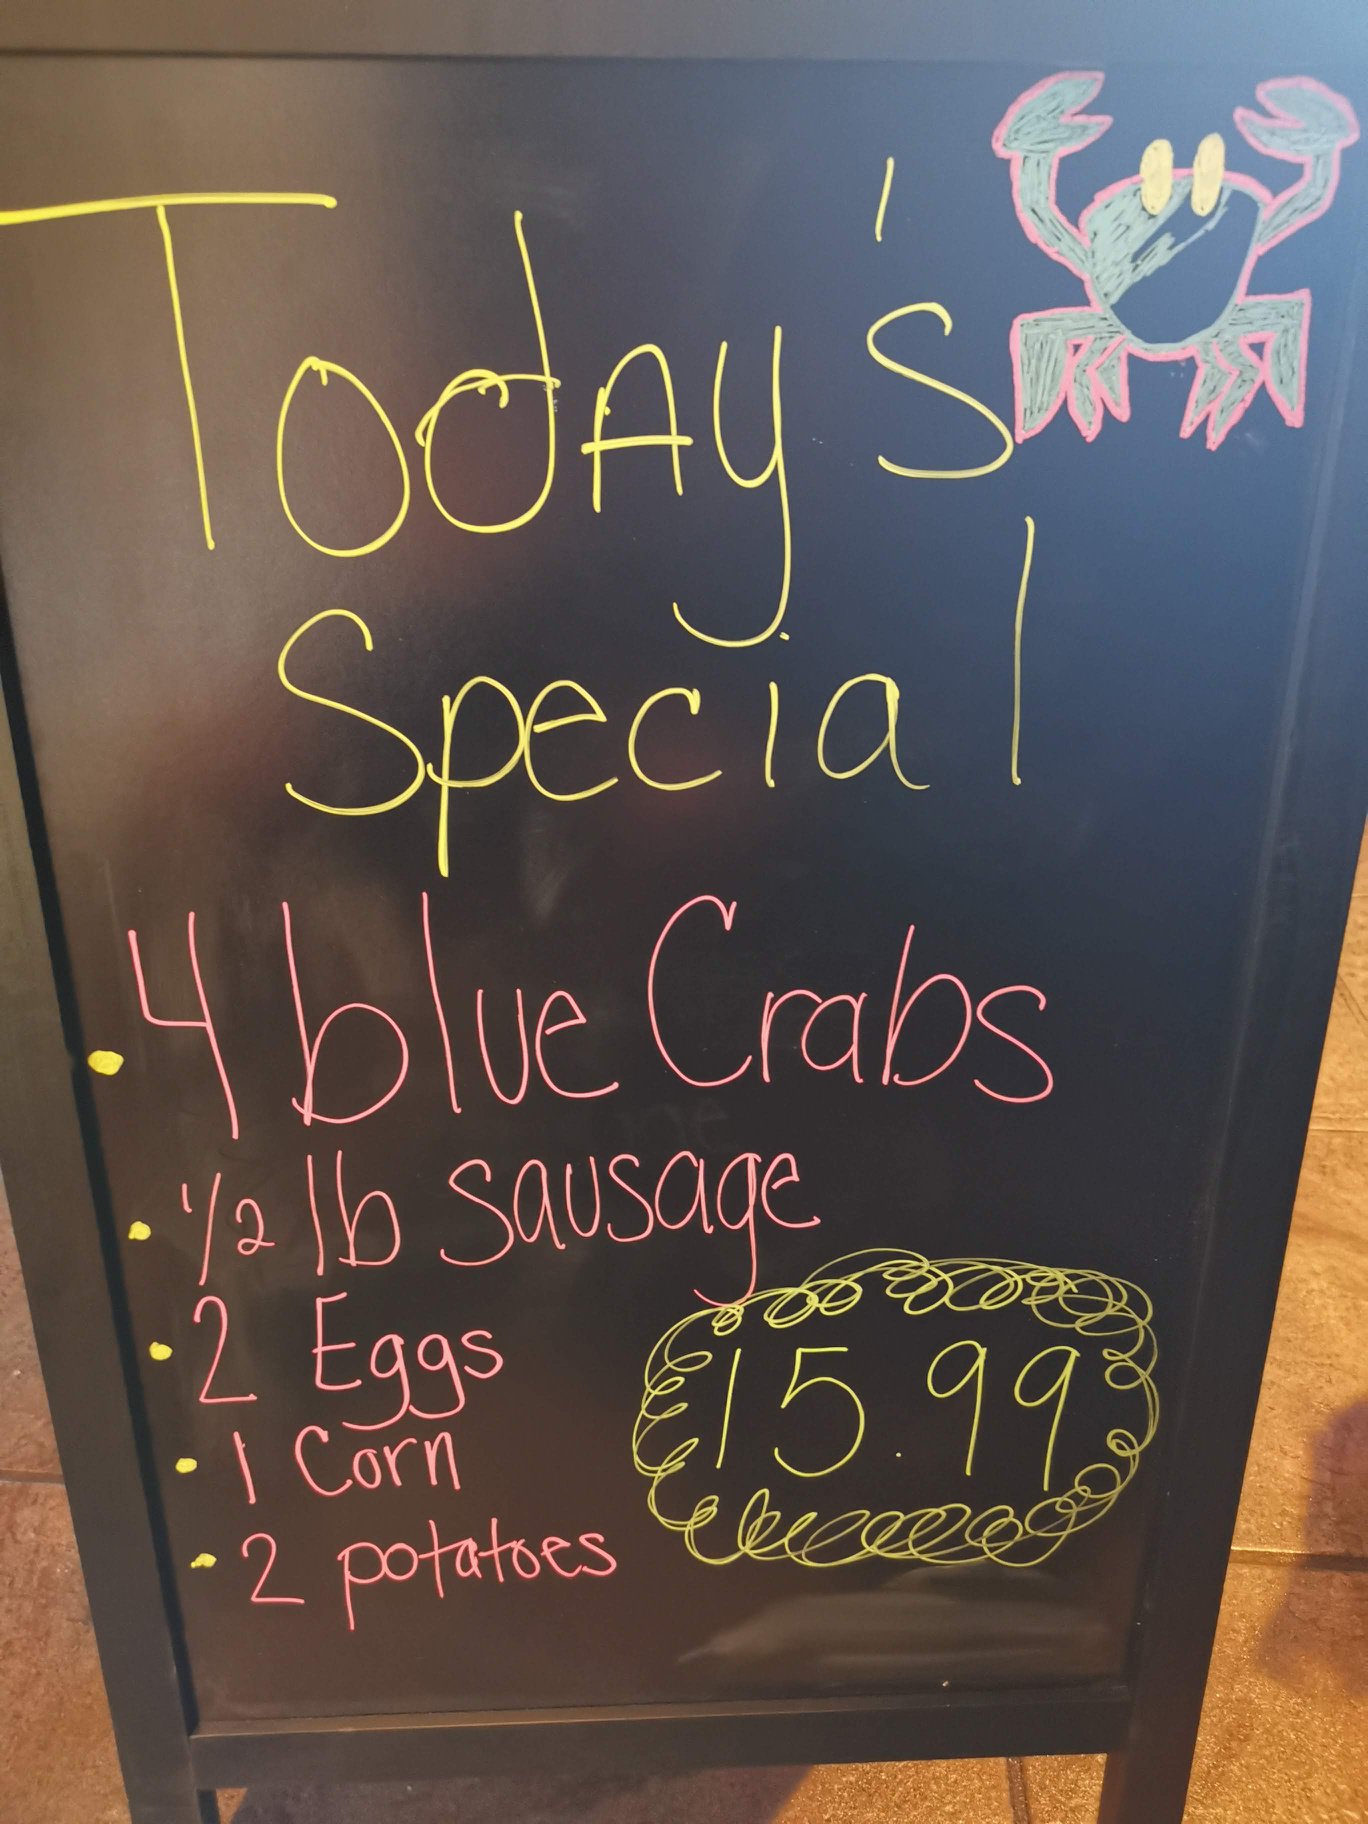 Today's
Special
• 4 blue Crabs
• 1/2 lb sausage
• 2 Eggs
• 1 Corn
• 2 potatoes
15.99